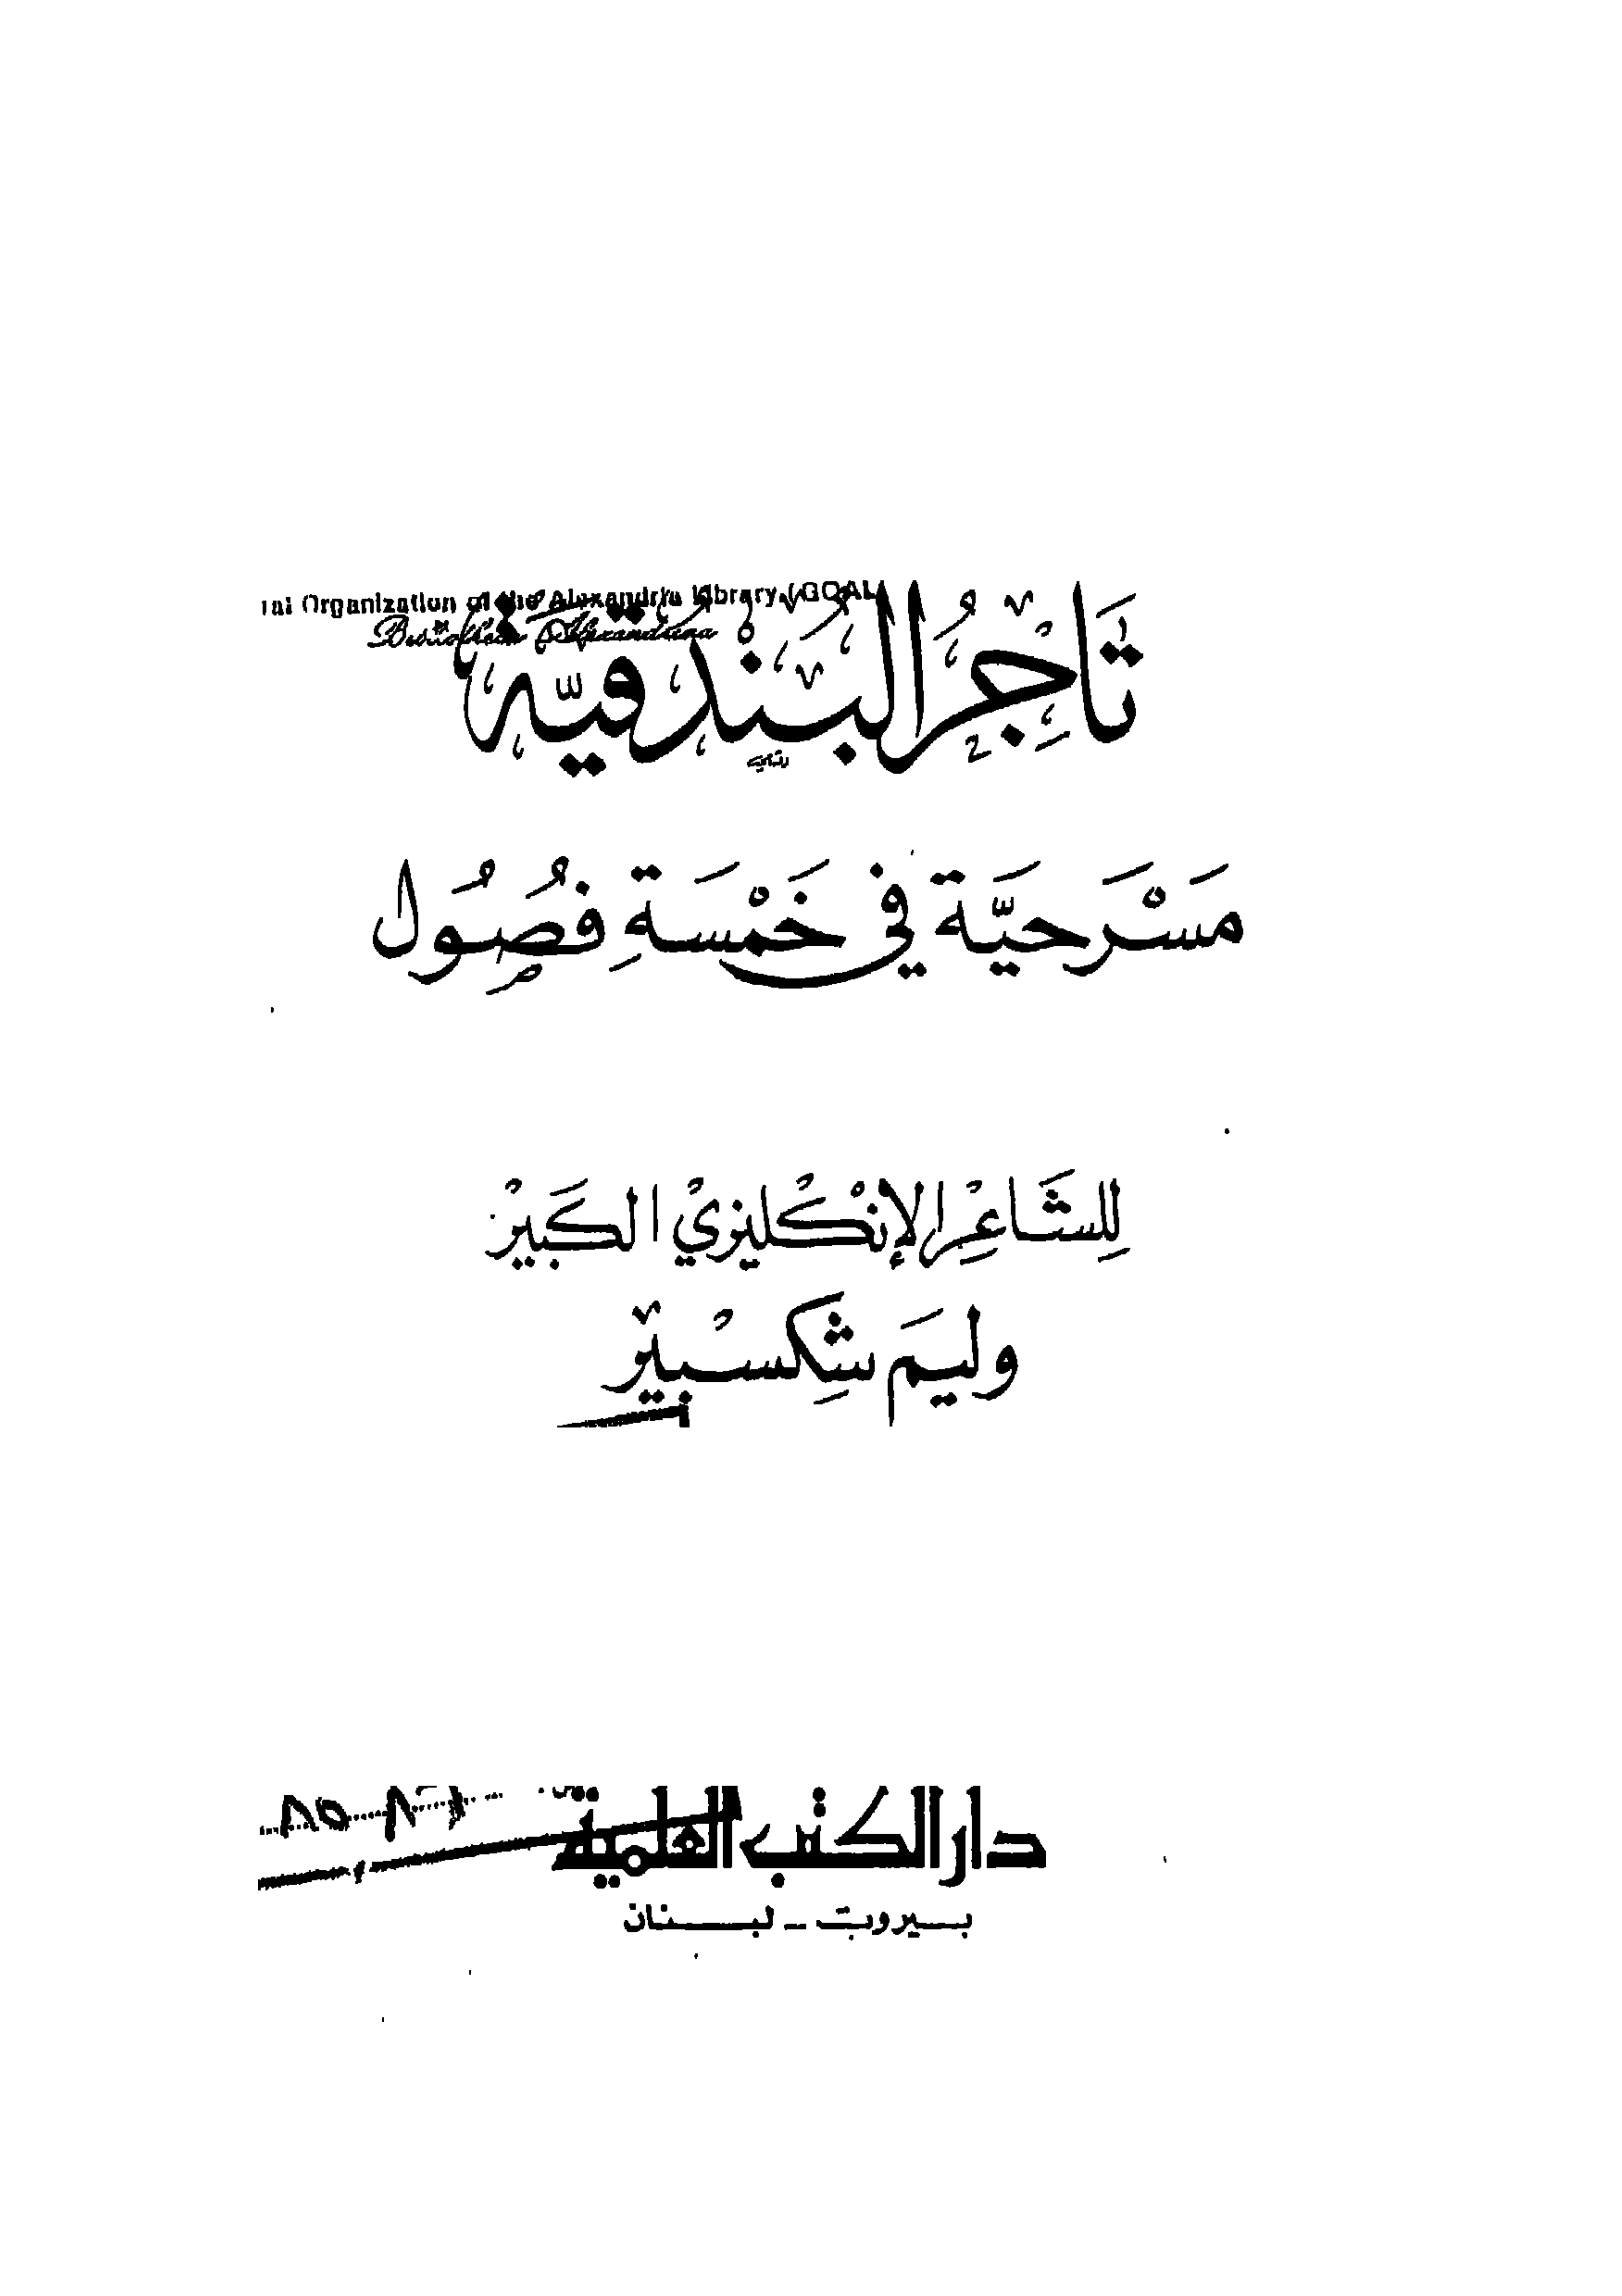 Organization of the Alexandria Library (GOAL
Bibliotheca Alexandrina
تَاجِرُ البُنْدُقِيَّة
مَسْرَحيَّة في خَمْسَةِ فصُول
لِلشَّاعِرِ الإنْكْليزيْ الكَبيْر
وليَم شِكسْبيْر
دار الكتب العلمية
بيروت - لبنان